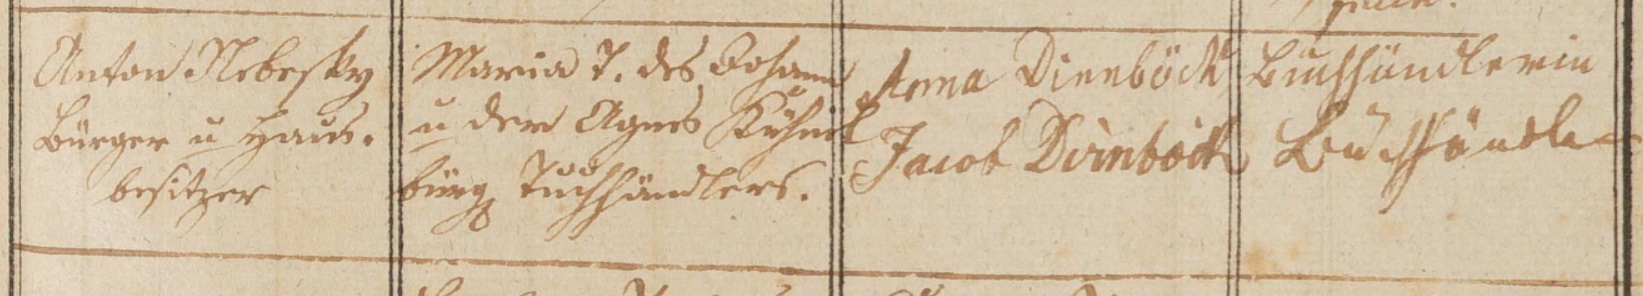 Anton Nebesky
Bürger u Haus-
besitzer
Maria T. des Johann
u der Agnes Kühnel
bürg Tuchhändlers.
Anna Dirnböck
Jacob Dirnböck
Buchhändlerin
Buchhändler